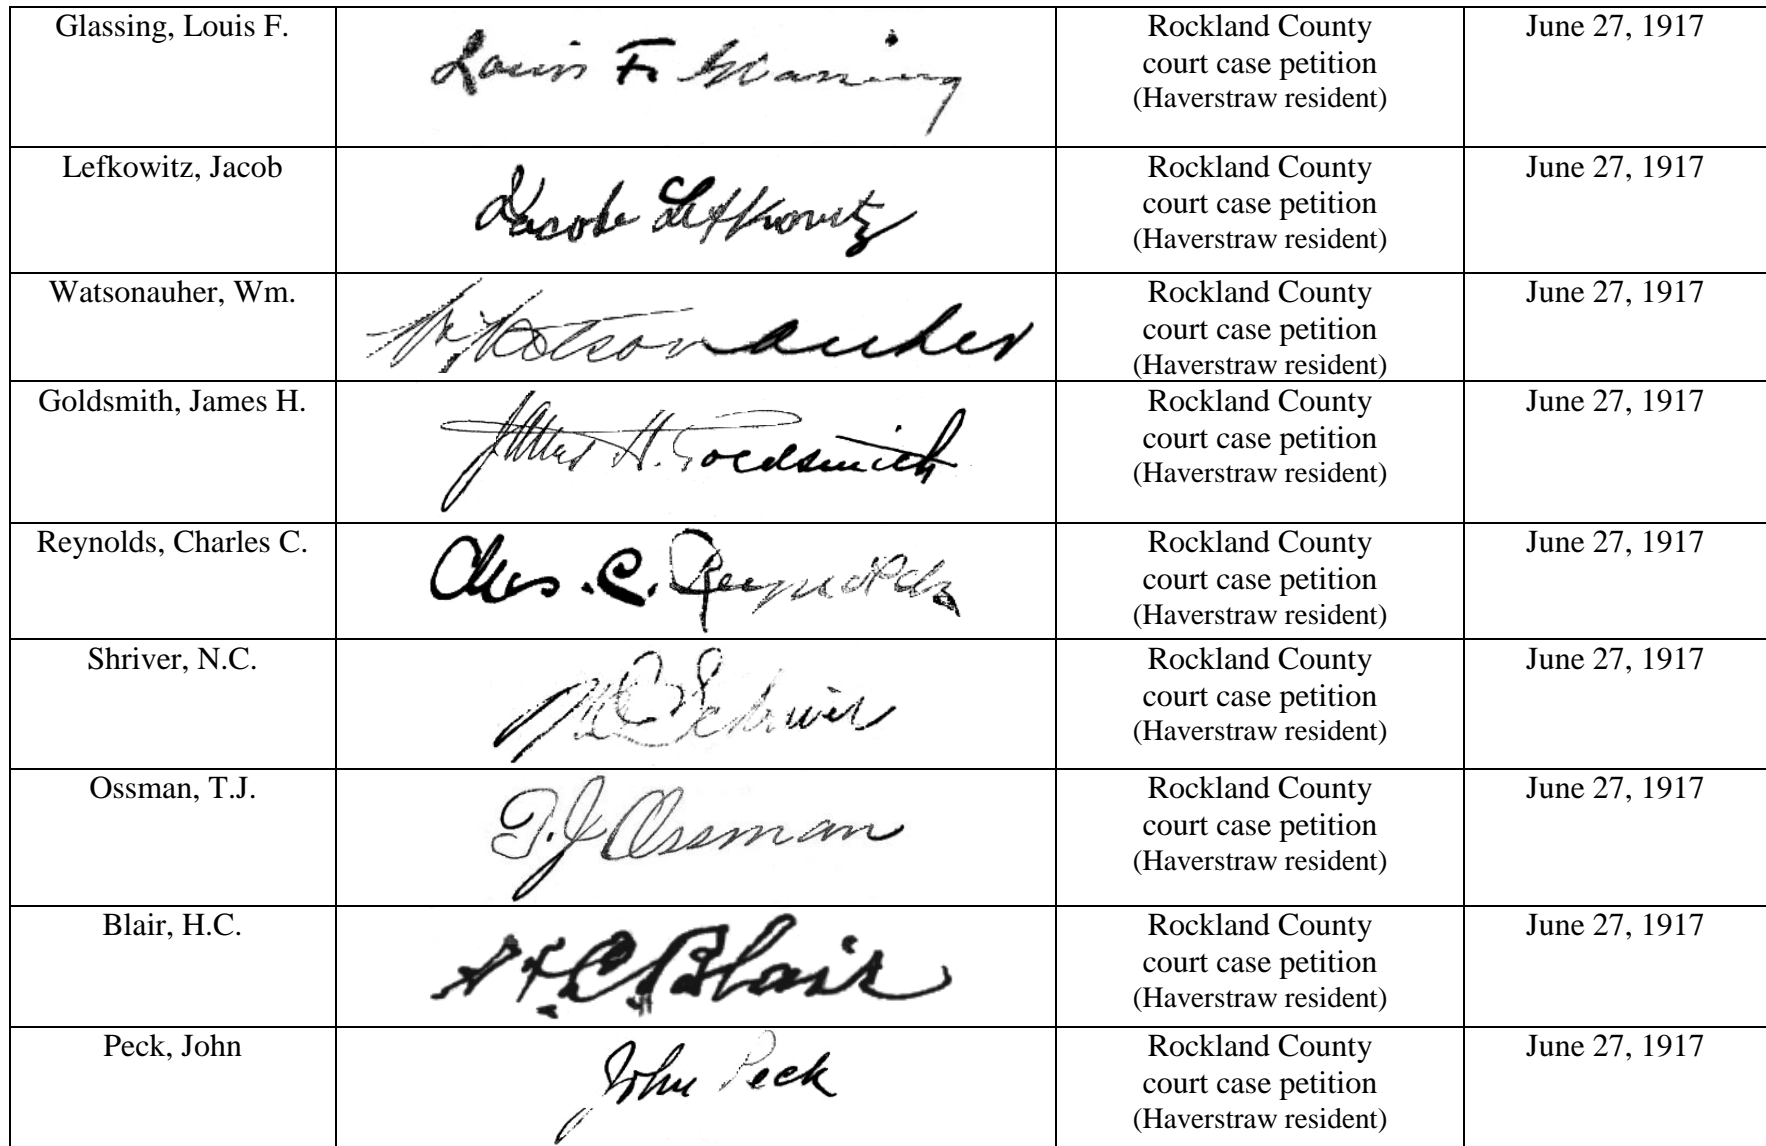 Glassing, Louis F.
Louis F. Glassing
Rockland County
court case petition
(Haverstraw resident)
June 27, 1917
Lefkowitz, Jacob
Jacob Lefkowitz
Rockland County
court case petition
(Haverstraw resident)
June 27, 1917
Watsonauher, Wm.
Wm Watsonauher
Rockland County
court case petition
(Haverstraw resident)
June 27, 1917
Goldsmith, James H.
James H. Goldsmith
Rockland County
court case petition
(Haverstraw resident)
June 27, 1917
Reynolds, Charles C.
Chas. C. Reynolds
Rockland County
court case petition
(Haverstraw resident)
June 27, 1917
Shriver, N.C.
N C Schriver
Rockland County
court case petition
(Haverstraw resident)
June 27, 1917
Ossman, T.J.
T. J Ossman
Rockland County
court case petition
(Haverstraw resident)
June 27, 1917
Blair, H.C.
H. C. Blair
Rockland County
court case petition
(Haverstraw resident)
June 27, 1917
Peck, John
John Peck
Rockland County
court case petition
(Haverstraw resident)
June 27, 1917